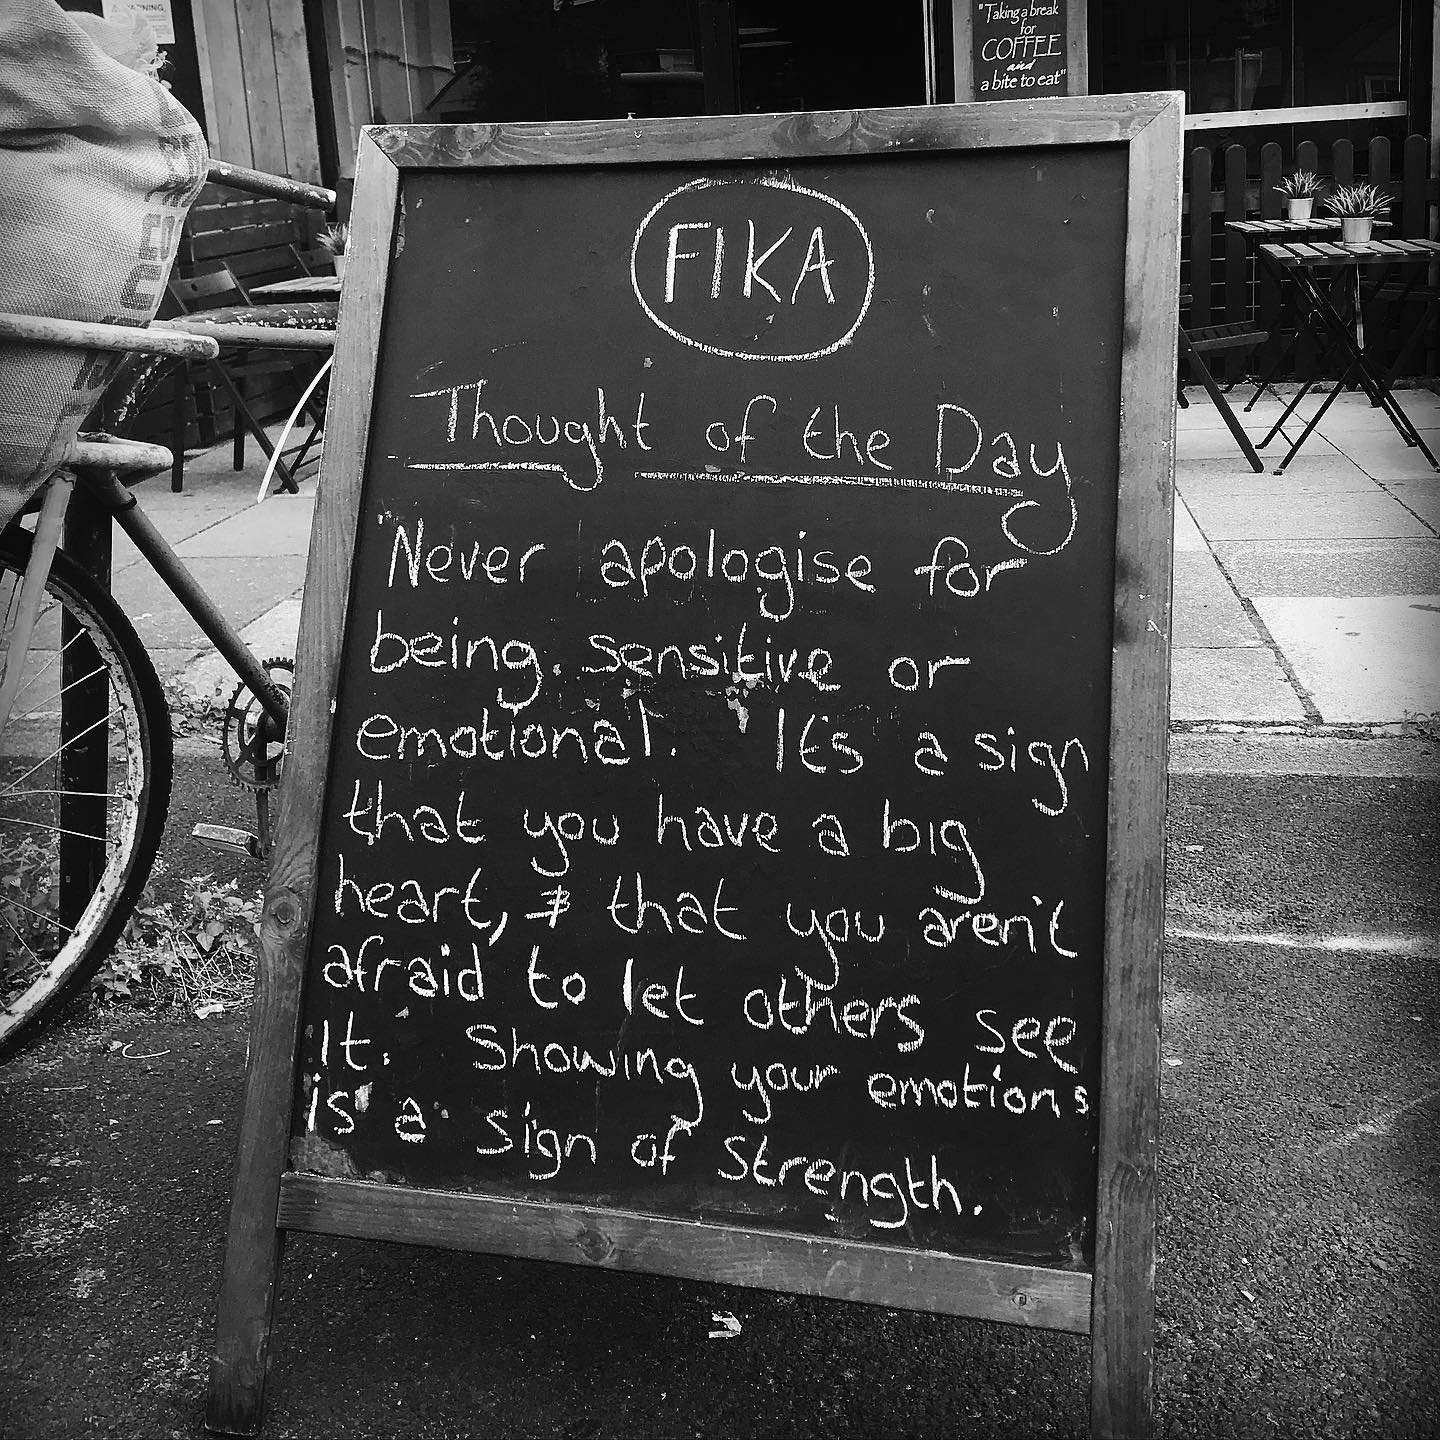 WARNING
"Taking a break
for
COFFEE
and
a bite to eat"
FIKA
Thought of the Day
"Never apologise for
being sensitive or
emotional. It's a sign
that you have a big
heart, & that you aren't
afraid to let others see
it. Showing your emotions
is a sign of strength.